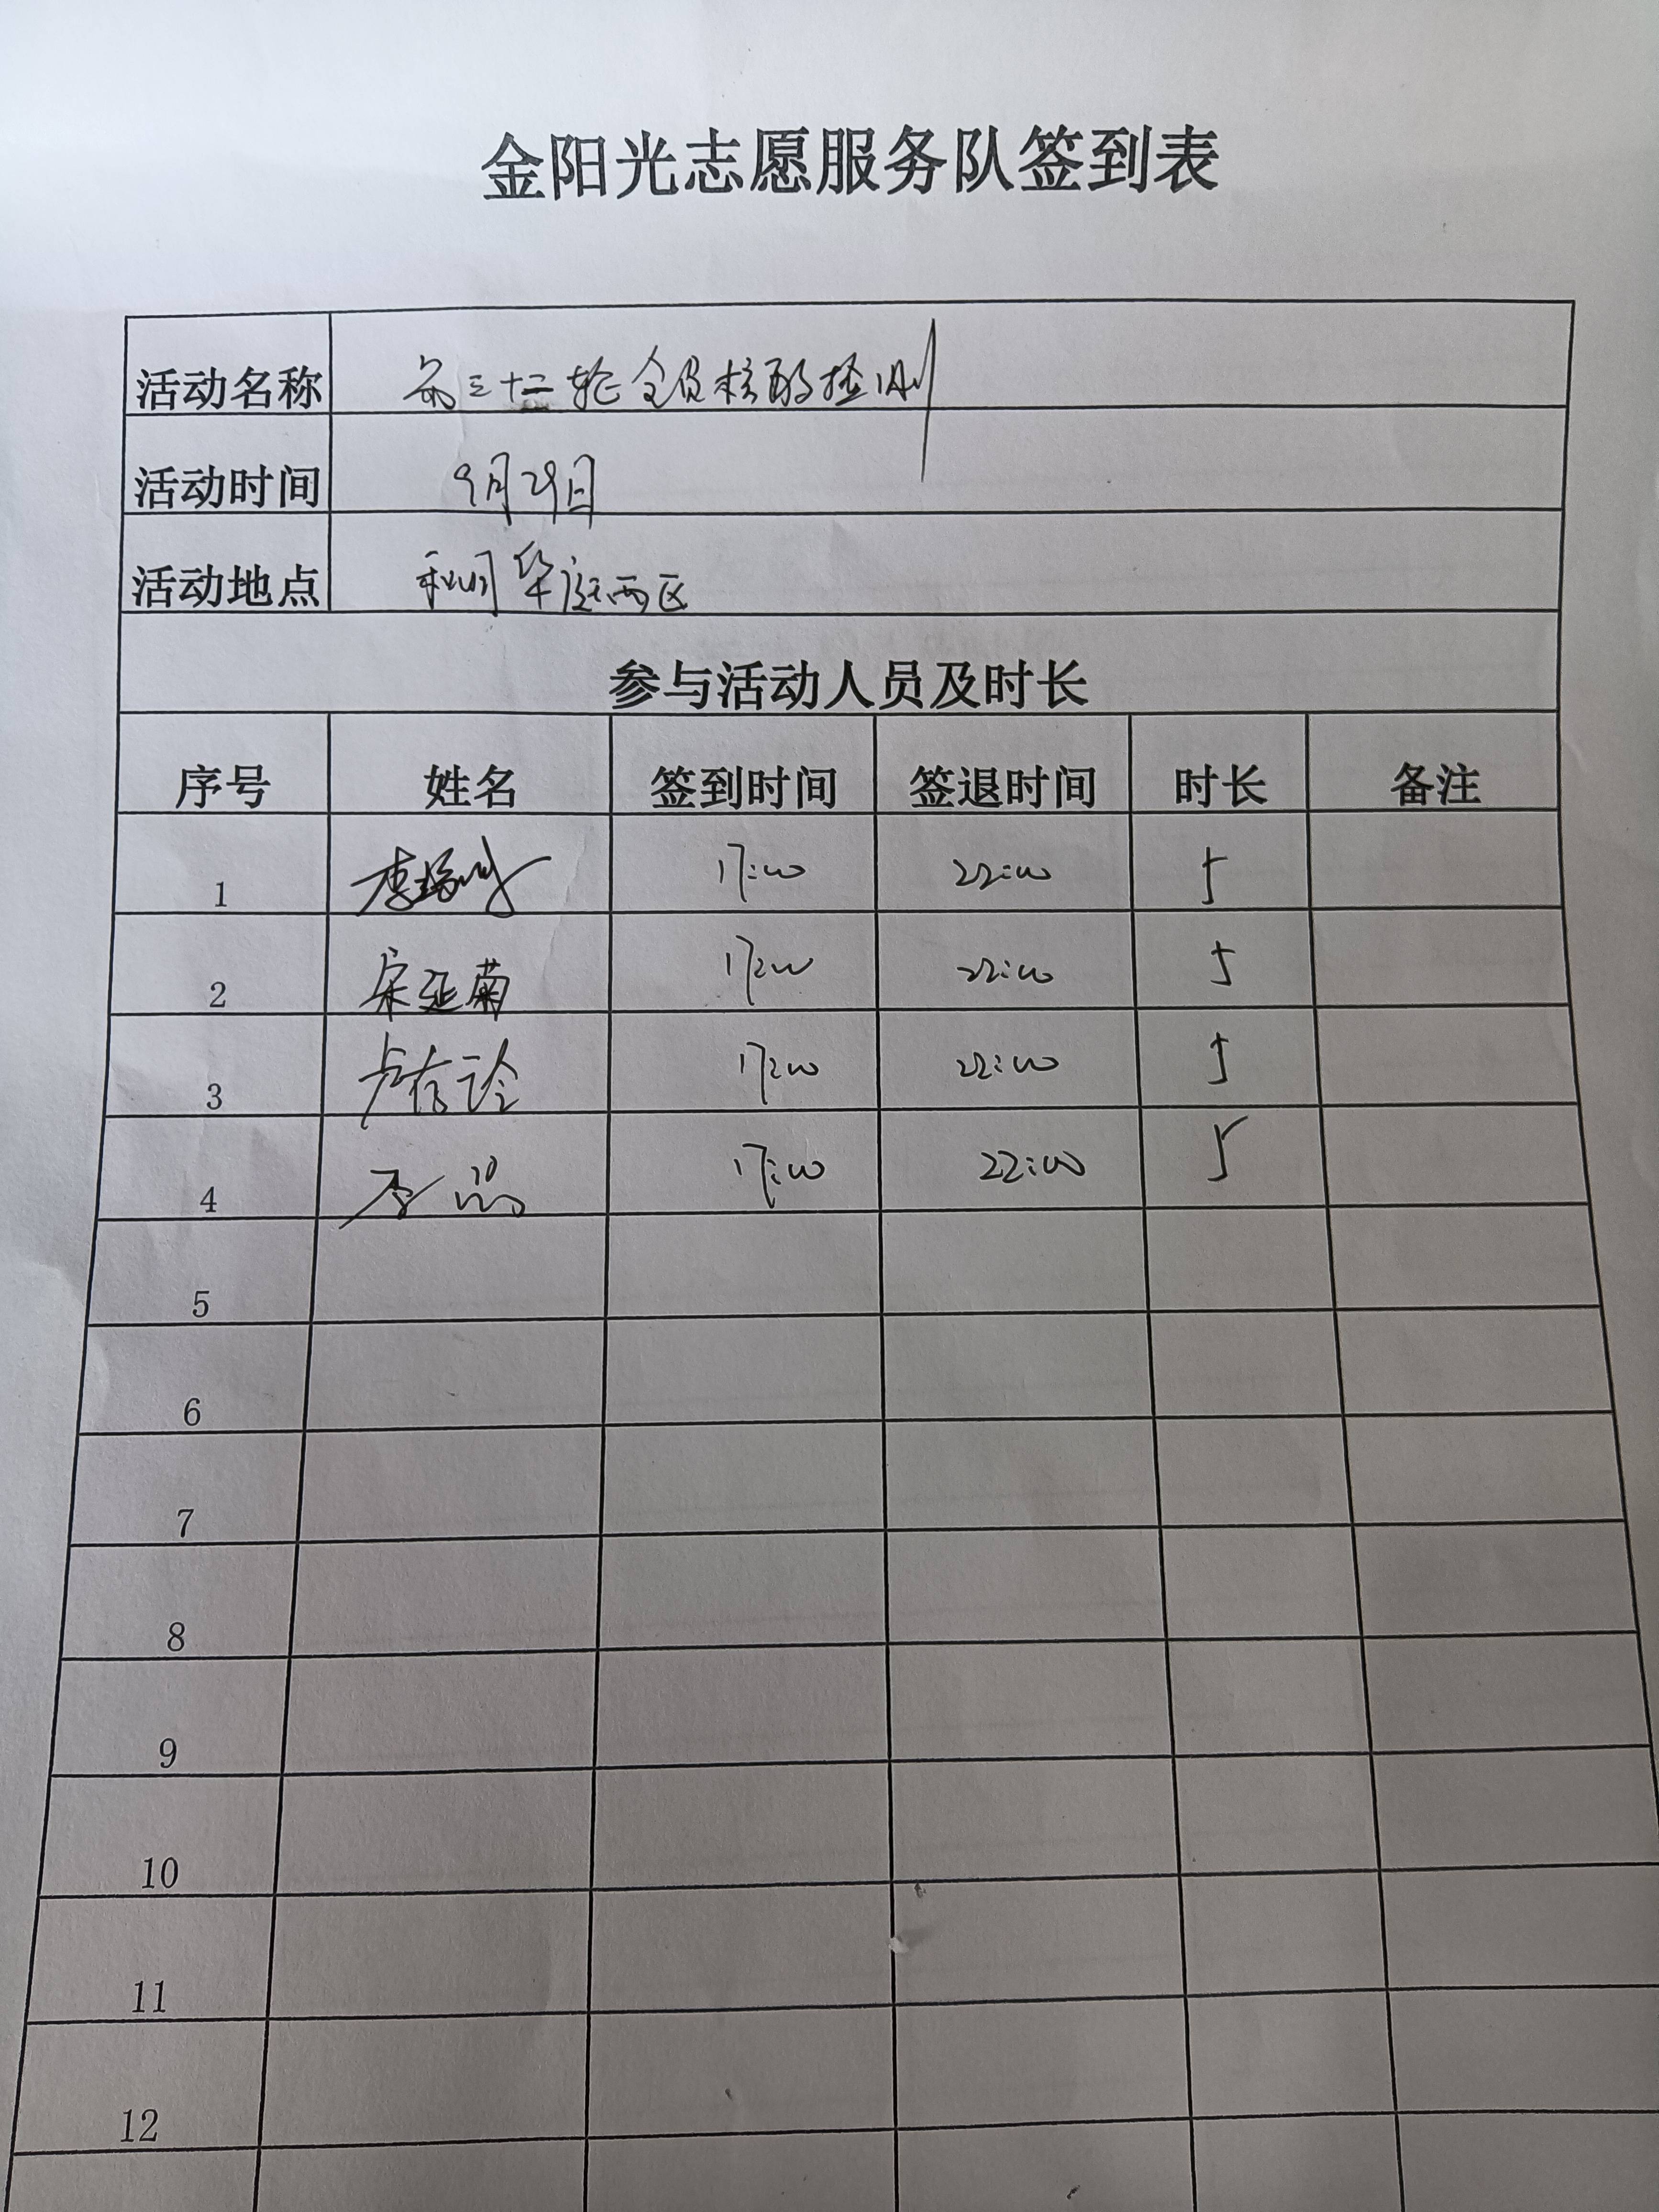 金阳光志愿服务队签到表
活动名称 第三十二轮全员核酸检测
活动时间 9月29日
活动地点 利群华庭西区
参与活动人员及时长
序号 姓名 签到时间 签退时间 时长 备注
1 李 17:00 22:00 5
2 宋延菊 17:00 22:00 5
3 卢 17:00 22:00 5
4 李 17:00 22:00 5
5
6
7
8
9
10
11
12